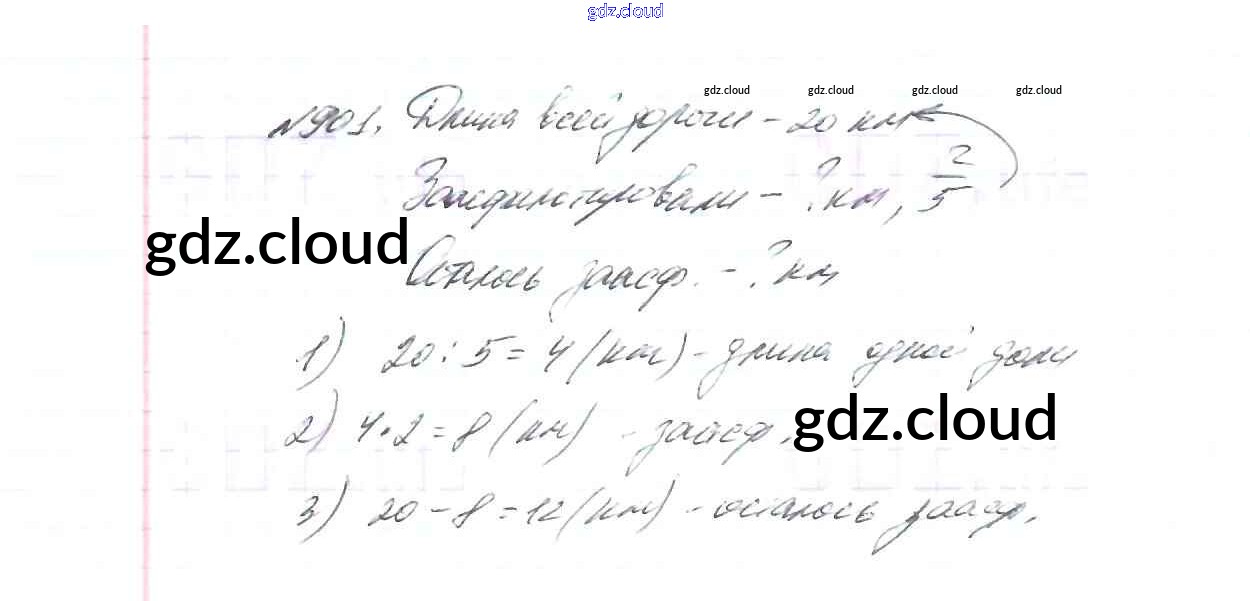 gdz.cloud
gdz.cloud gdz.cloud gdz.cloud gdz.cloud
№901. Длина всей дороги - 20 км
Заасфальтировали - ? км, 2/5
gdz.cloud
Осталось заасф. - ? км
1) 20 : 5 = 4 (км) - длина одной доли
2) 4 · 2 = 8 (км) - заасф.
gdz.cloud
3) 20 - 8 = 12 (км) - осталось заасф.